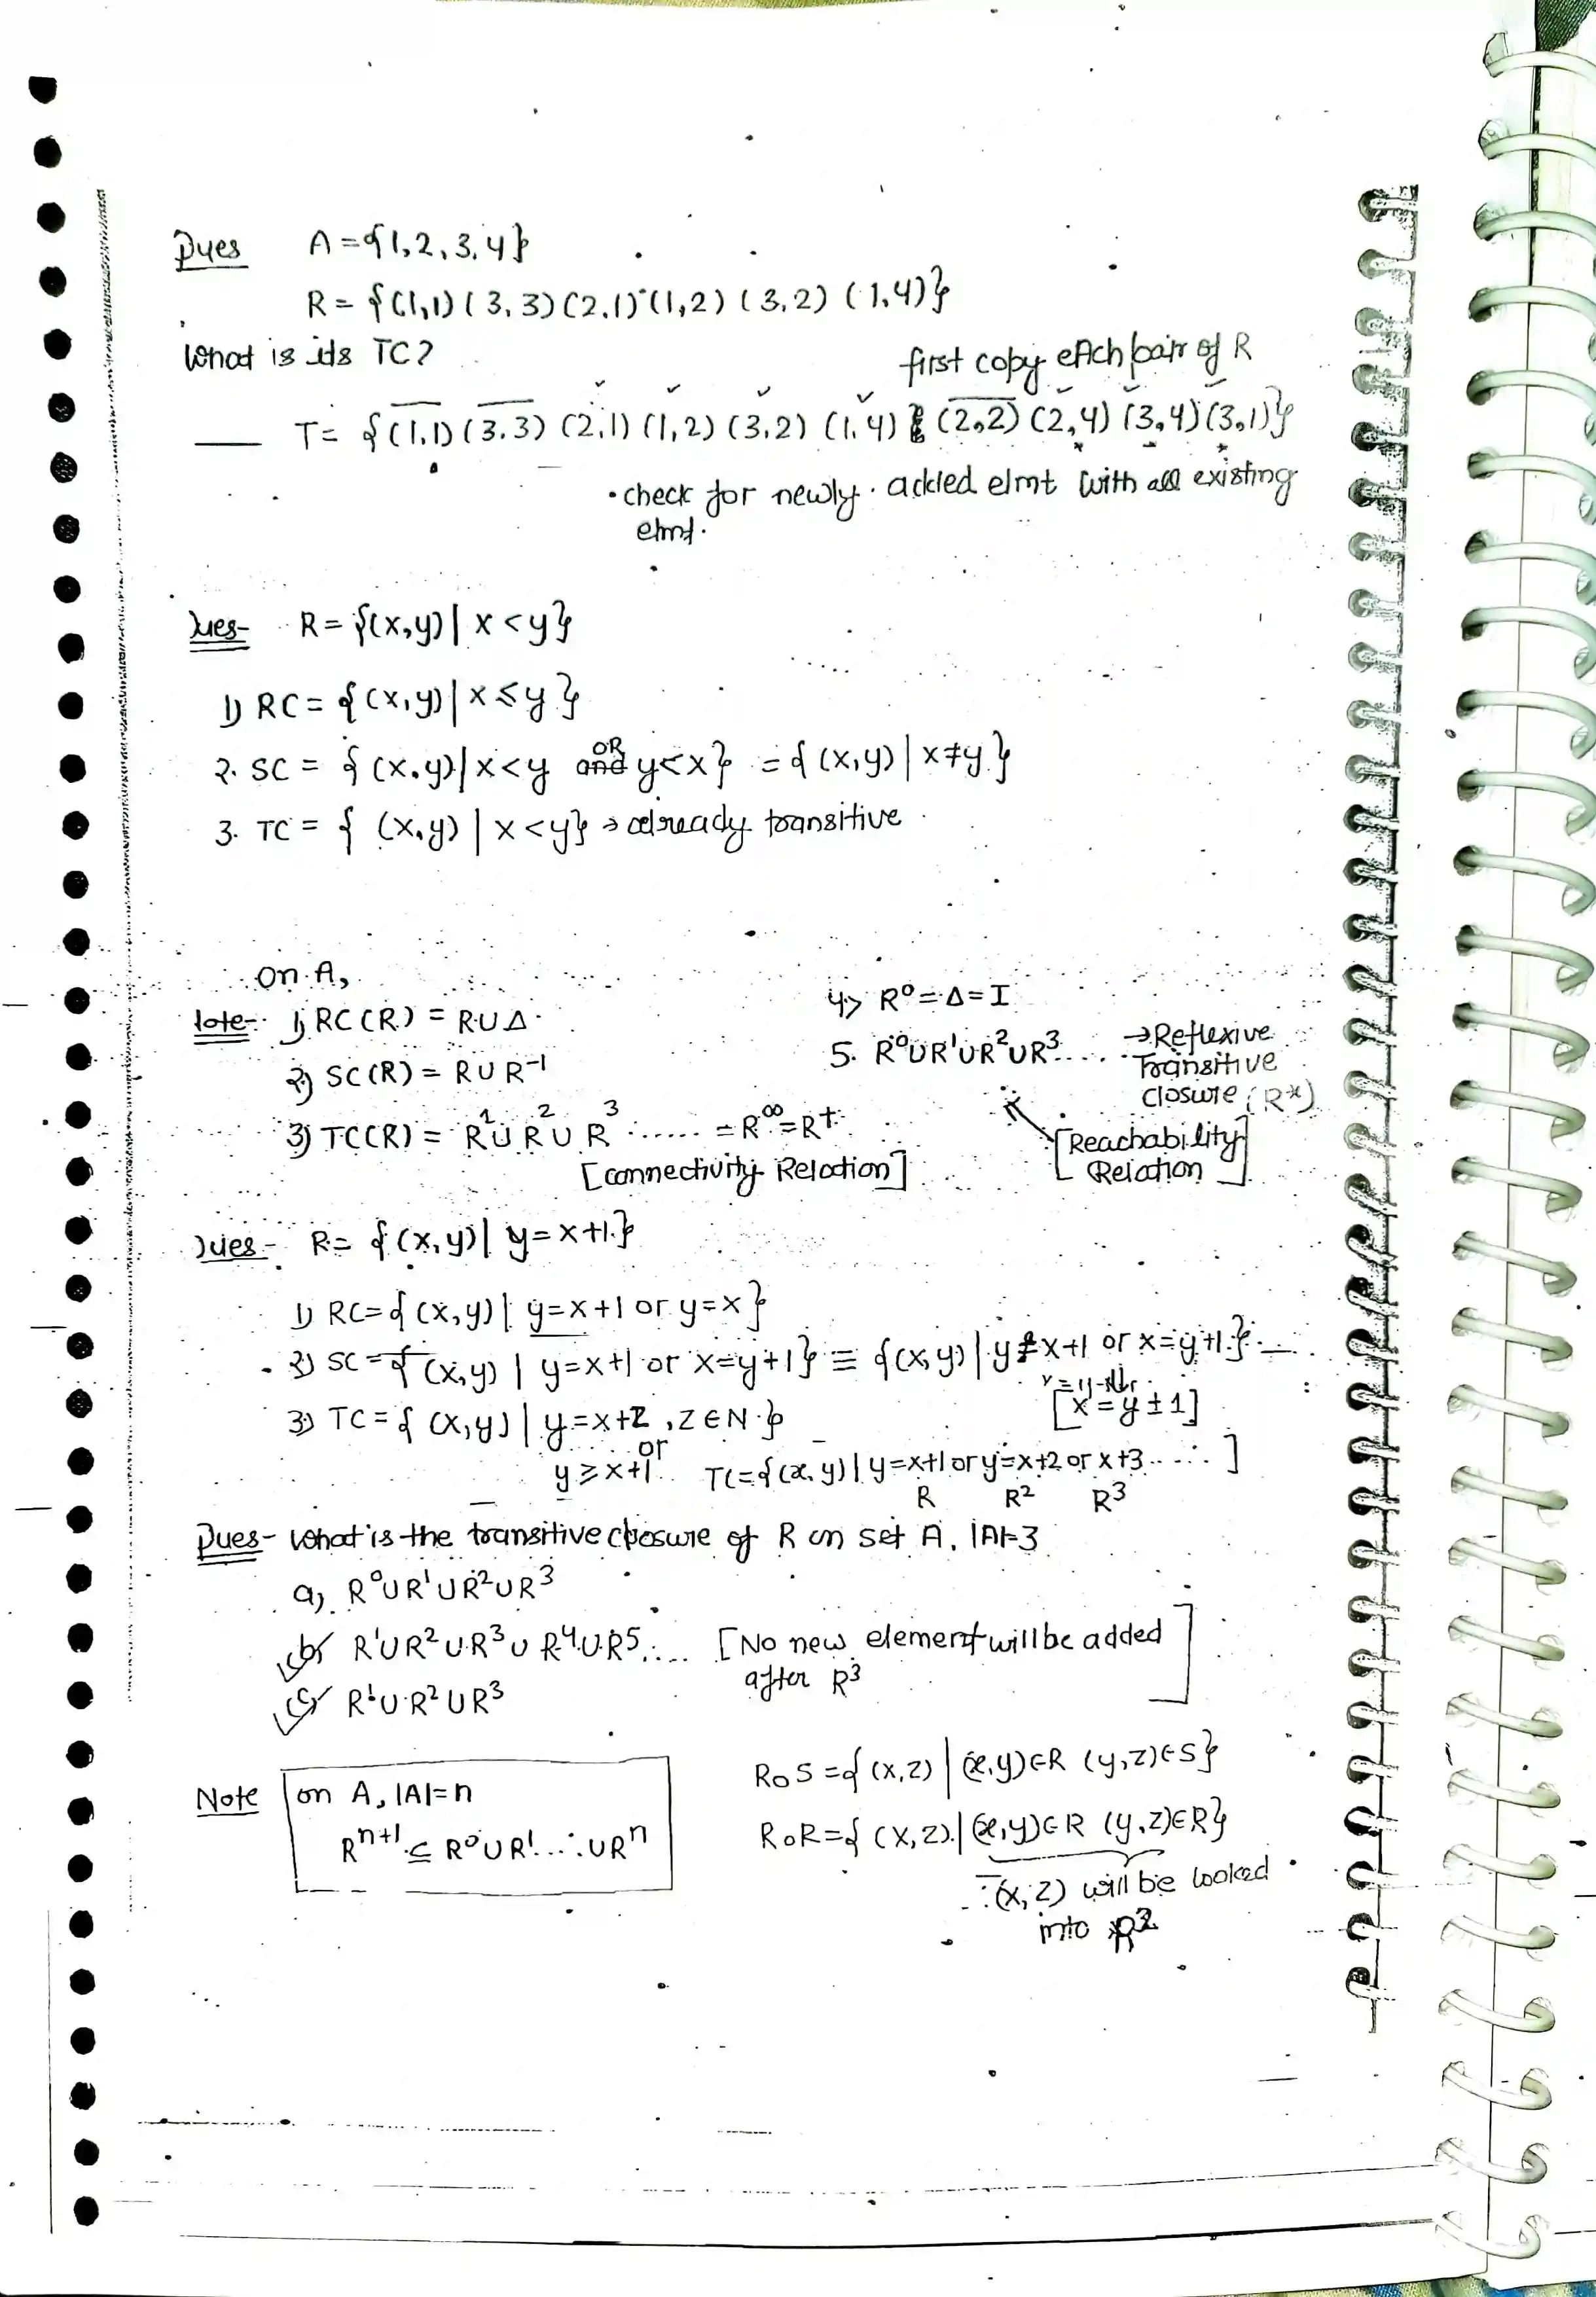 Ques A = {1, 2, 3, 4}
R = {(1,1) (3,3) (2,1) (1,2) (3,2) (1,4)}
What is its TC?
first copy each pair of R
T = {(1,1) (3,3) (2,1) (1,2) (3,2) (1,4) (2,2) (2,4) (3,4) (3,1)}
• check for newly added elmt with all existing
elmt.
Ques- R = {(x,y) | x < y}
1) RC = {(x,y) | x ≤ y}
2. SC = {(x,y) | x<y and OR y<x} = {(x,y) | x≠y}
3. TC = {(x,y) | x<y} → already transitive
on A,
Note- 1) RC(R) = R ∪ Δ
2) SC(R) = R ∪ R⁻¹
3) TC(R) = R¹ ∪ R² ∪ R³ ...... = R^∞ = R⁺
[connectivity Relation]
4) R⁰ = Δ = I
5. R⁰ ∪ R¹ ∪ R² ∪ R³ .... → Reflexive
Transitive
closure (R*)
[Reachability
Relation]
Ques- R = {(x,y) | y = x+1}
1) RC = {(x,y) | y=x+1 or y=x}
2) SC = {(x,y) | y=x+1 or x=y+1} ≡ {(x,y) | y=x+1 or x=y+1}
[x = y ± 1]
3) TC = {(x,y) | y=x+Z, Z∈N}
or
y ≥ x+1 TC = {(x,y) | y=x+1 or y=x+2 or x+3 ..... ]
R R² R³
Ques- What is the transitive closure of R on set A. |A|=3
a) R⁰∪R¹∪R²∪R³
b) R¹∪R²∪R³∪R⁴∪R⁵.... [No new element will be added
after R³ ]
c) R¹∪R²∪R³
Note on A, |A|=n
R^(n+1) ⊆ R⁰∪R¹....∪Rⁿ
RoS = {(x,z) | (x,y)∈R (y,z)∈S}
RoR = {(x,z) | (x,y)∈R (y,z)∈R}
∴ (x,z) will be looked
into R²